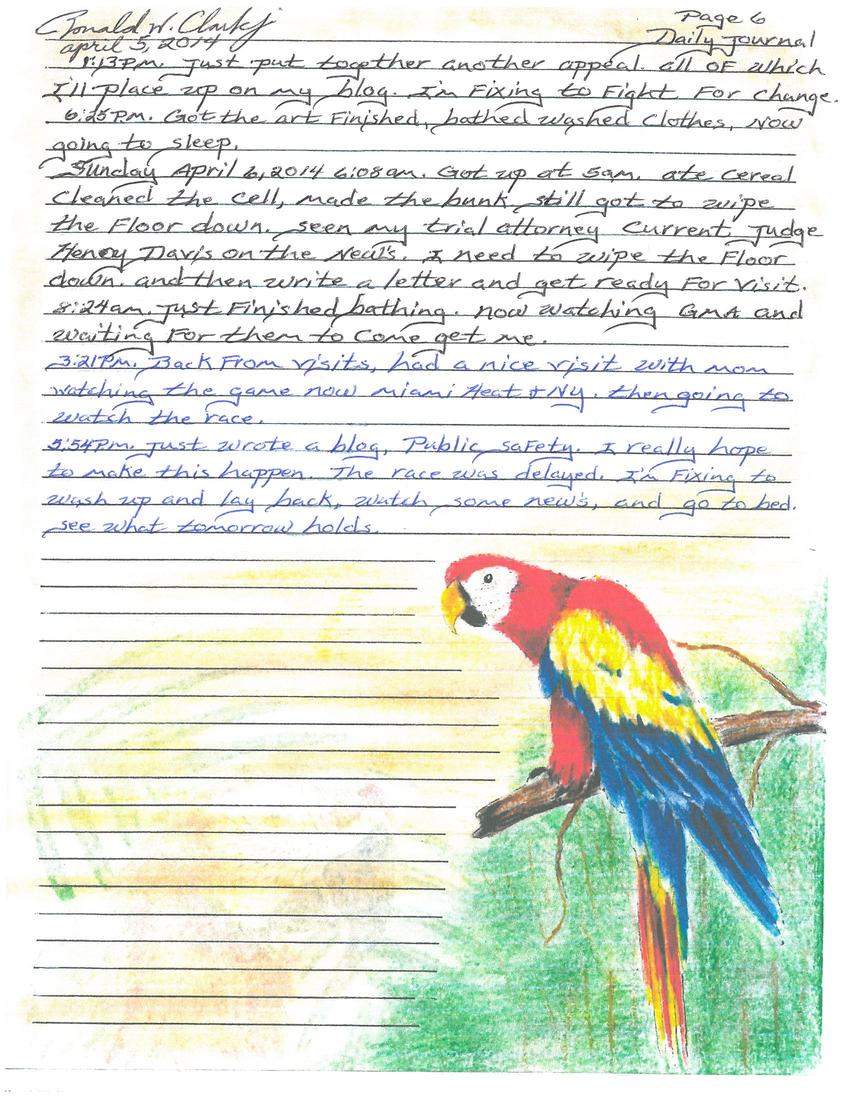 Ronald W. Clark jr
Page 6
april 5, 2014
Daily Journal
1:13pm. Just put together another appeal. all of which
I'll place up on my blog. I'm Fixing to Fight For change.
6:25pm. Got the art Finished, bathed washed clothes, Now
going to sleep.
Sunday April 6, 2014 6:08am. Got up at 5am. ate cereal
cleaned the cell, made the bunk still got to wipe
the Floor down. seen my trial attorney Current Judge
Henry Davis on the New's. I need to wipe the Floor
down. and then write a letter and get ready For visit.
8:24am. Just Finished bathing. now watching GMA and
waiting For them to come get me.
3:21pm. Back From visits, had a nice visit with mom
watching the game now miami Heat & NY. then going to
watch the race.
5:54pm. Just wrote a blog, Public safety. I really hope
to make this happen. The race was delayed. I'm Fixing to
wash up and lay back, watch some new's, and go to bed.
see what tomorrow holds.